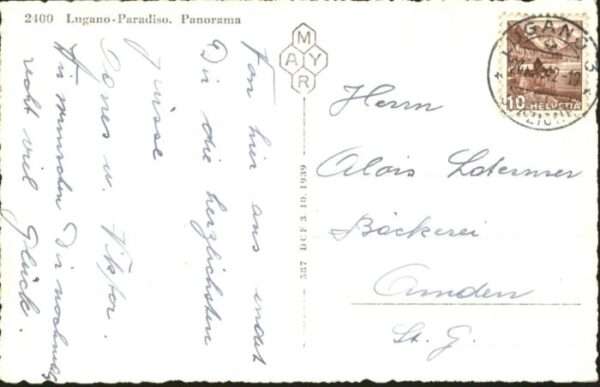 2400 Lugano-Paradiso. Panorama
Von hier aus
Dir die herzlichsten
Grüsse
Viktor.
Wir wünschen Dir nochmals
recht viel Glück.
MAYR
387 DCF 3. 10. 1939
LUGANO 3
10 HELVETIA
Herrn
Alois
Bäckerei
Amden
St. G.